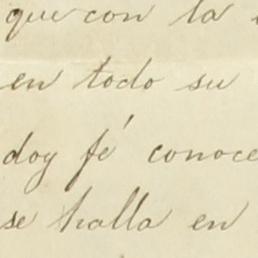 que con la
en todo su
doy fé conoce
se halla en